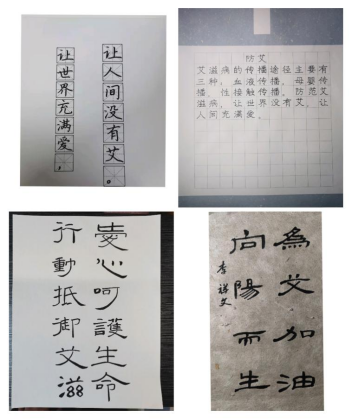 让世界充满爱，
让人间没有艾。
防艾
艾滋病的传播途径主要有
三种：血液传播、母婴传
播、性接触传播。防范艾
滋病，让世界没有艾，让
人间充满爱。
愛心呵護生命
行動抵御艾滋
為艾加油
向陽而生